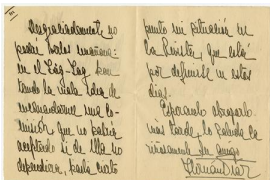 Desgraciadamente no
poder hablar mañana:
en el Zig-Zag han
tenido la mala idea de
encomendarme una co-
misión que no podría
aceptado si de ella no
dependiera, hasta cierto
punto mi situación en
la Revista, que está
por definirse en estos
días.
Esperando abrazarlo
más tarde, lo saluda ca-
riñosamente su amigo